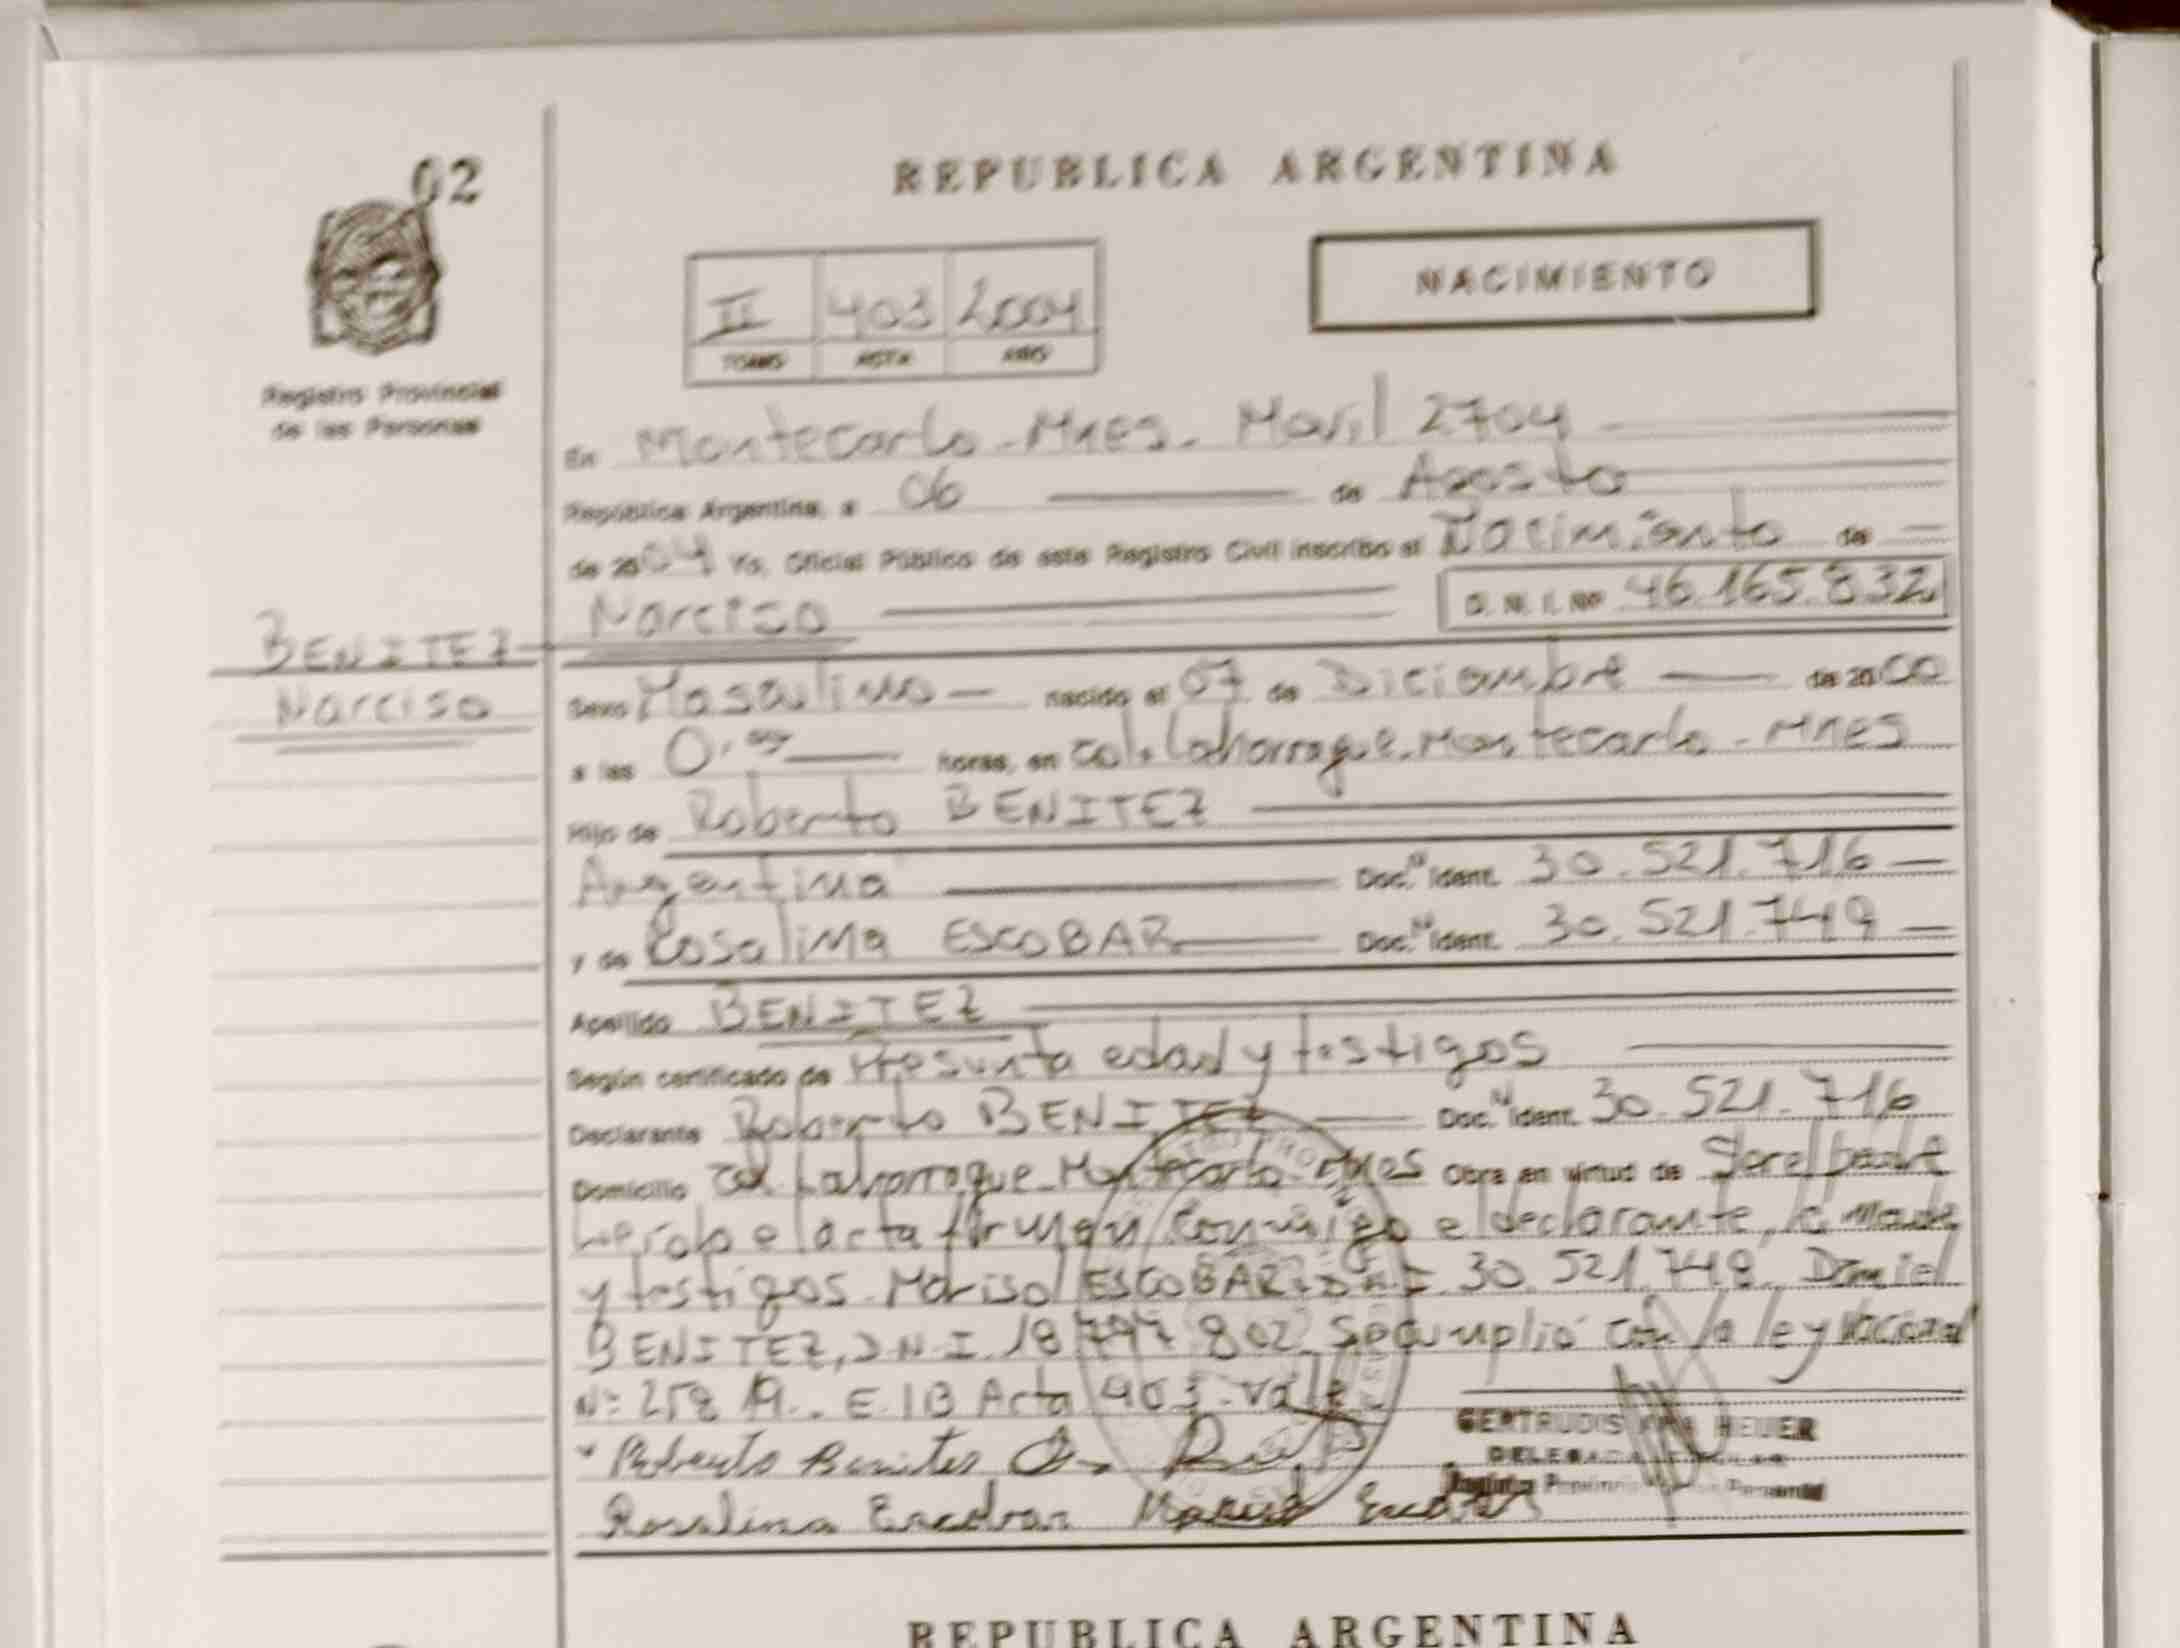 02
REPUBLICA ARGENTINA
NACIMIENTO
II 403 2004
TOMO ACTA AÑO
Registro Provincial
de las Personas
En Montecarlo - Mnes. Movil 2704
República Argentina, a 06 de Agosto
de 2004 Yo, Oficial Público de este Registro Civil inscribo el Nacimiento de
Narciso D. N. I. Nº 46.165.832
BENITEZ
Narciso
Sexo Masculino nacido el 07 de Diciembre de 2000
a las 0, horas, en Col. Laharrague. Montecarlo - Mnes
Hijo de Roberto BENITEZ
Argentina Doc. N Ident. 30.521.716
y de Rosalina ESCOBAR Doc. N Ident. 30.521.749
Apellido BENITEZ
Según certificado de Presunta edad y testigos
Declarante Roberto BENITEZ Doc. N Ident. 30.521.716
Domicilio Col Laharrague - Montecarlo - Mnes Obra en virtud de
Leída el acta firman conmigo el declarante, la madre
y testigos. Marisol ESCOBAR, D.N.I. 30.521.748. Daniel
BENITEZ, D.N.I. 18 802 Se cumplió con la ley Nacional
Nº E. 1B Acta 403 - Vale
Roberto Benites
Rosalina Escobar
GERTRUDIS HEUER
DELEGADA
REPUBLICA ARGENTINA